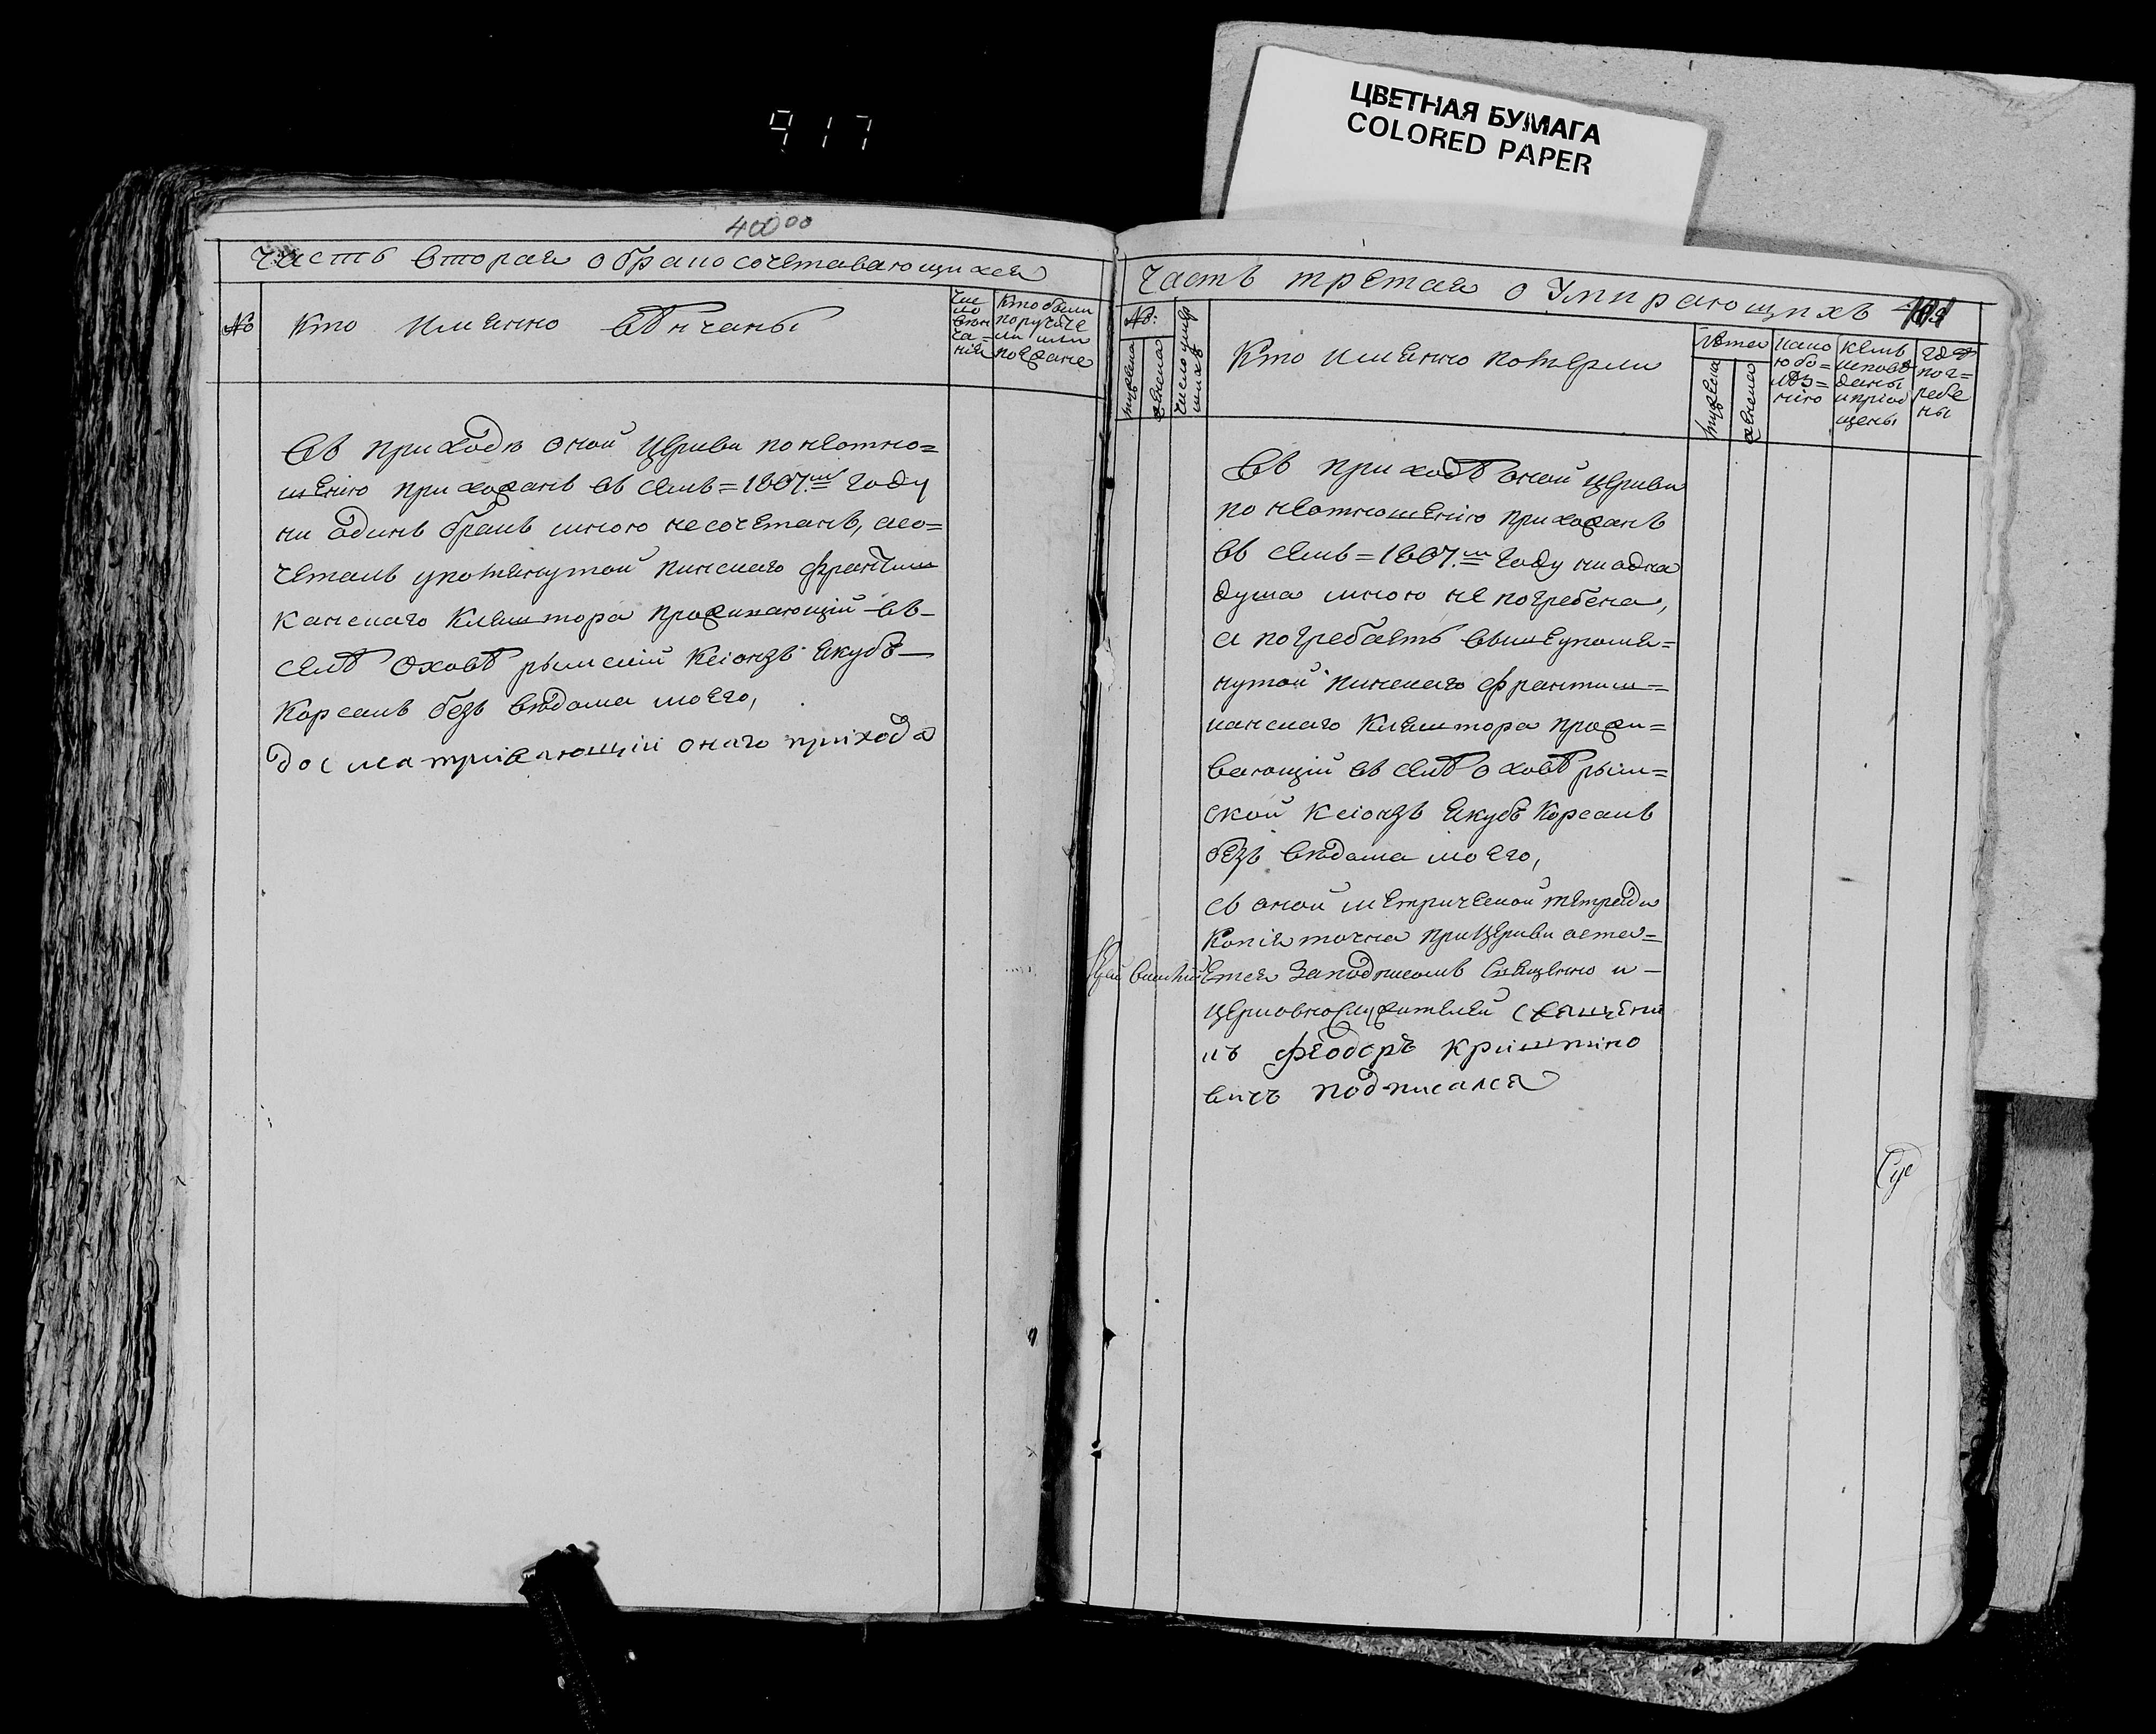 917
ЦВЕТНАЯ БУМАГА
COLORED PAPER
400
Часть вторая о бракосочетавающихся
№
Кто имянно вѣнчаны
Чис
ло
вѣн
ча=
нія
Кто были
поручите
ли или
поезжане
Въ приходѣ оной церкви по неотно=
шенію прихожанъ въ семъ=1807.м году
ни одинъ бракъ мною не сочетанъ, а со=
четалъ упомянутой пинскаго францыш
канскаго кляштора проживающій въ
селѣ Оховѣ рымскій ксіонзъ Якубъ
Корсакъ безъ вѣдома моего,
досматривающій онаго прихода
Часть третая о Умирающихъ 401
№:
мужеска
женска
число умер
шихъ
Кто имянно померли
Лѣта
мужеска
женска
какою
болѣз=
нію
Кемъ
исповѣ
даны
и пріоб
щены
гдѣ
пог=
ребе
ны
Въ приходѣ оной церкви
по неотношенію прихожанъ
въ семъ=1807.м году ни одна
душа мною не погребена,
а погребаетъ вышеупомя=
нутой пинскаго францыш=
канскаго кляштора прожи=
вающій въ селѣ Оховѣ рым=
ской ксіонзъ Якубъ Корсакъ
безъ вѣдома моего,
съ оной метрической тетради
копія точна при церкви оста=
ется за подписомъ священно и
церковнослужителей Священи
къ Феодоръ Криштино
вичъ подписался